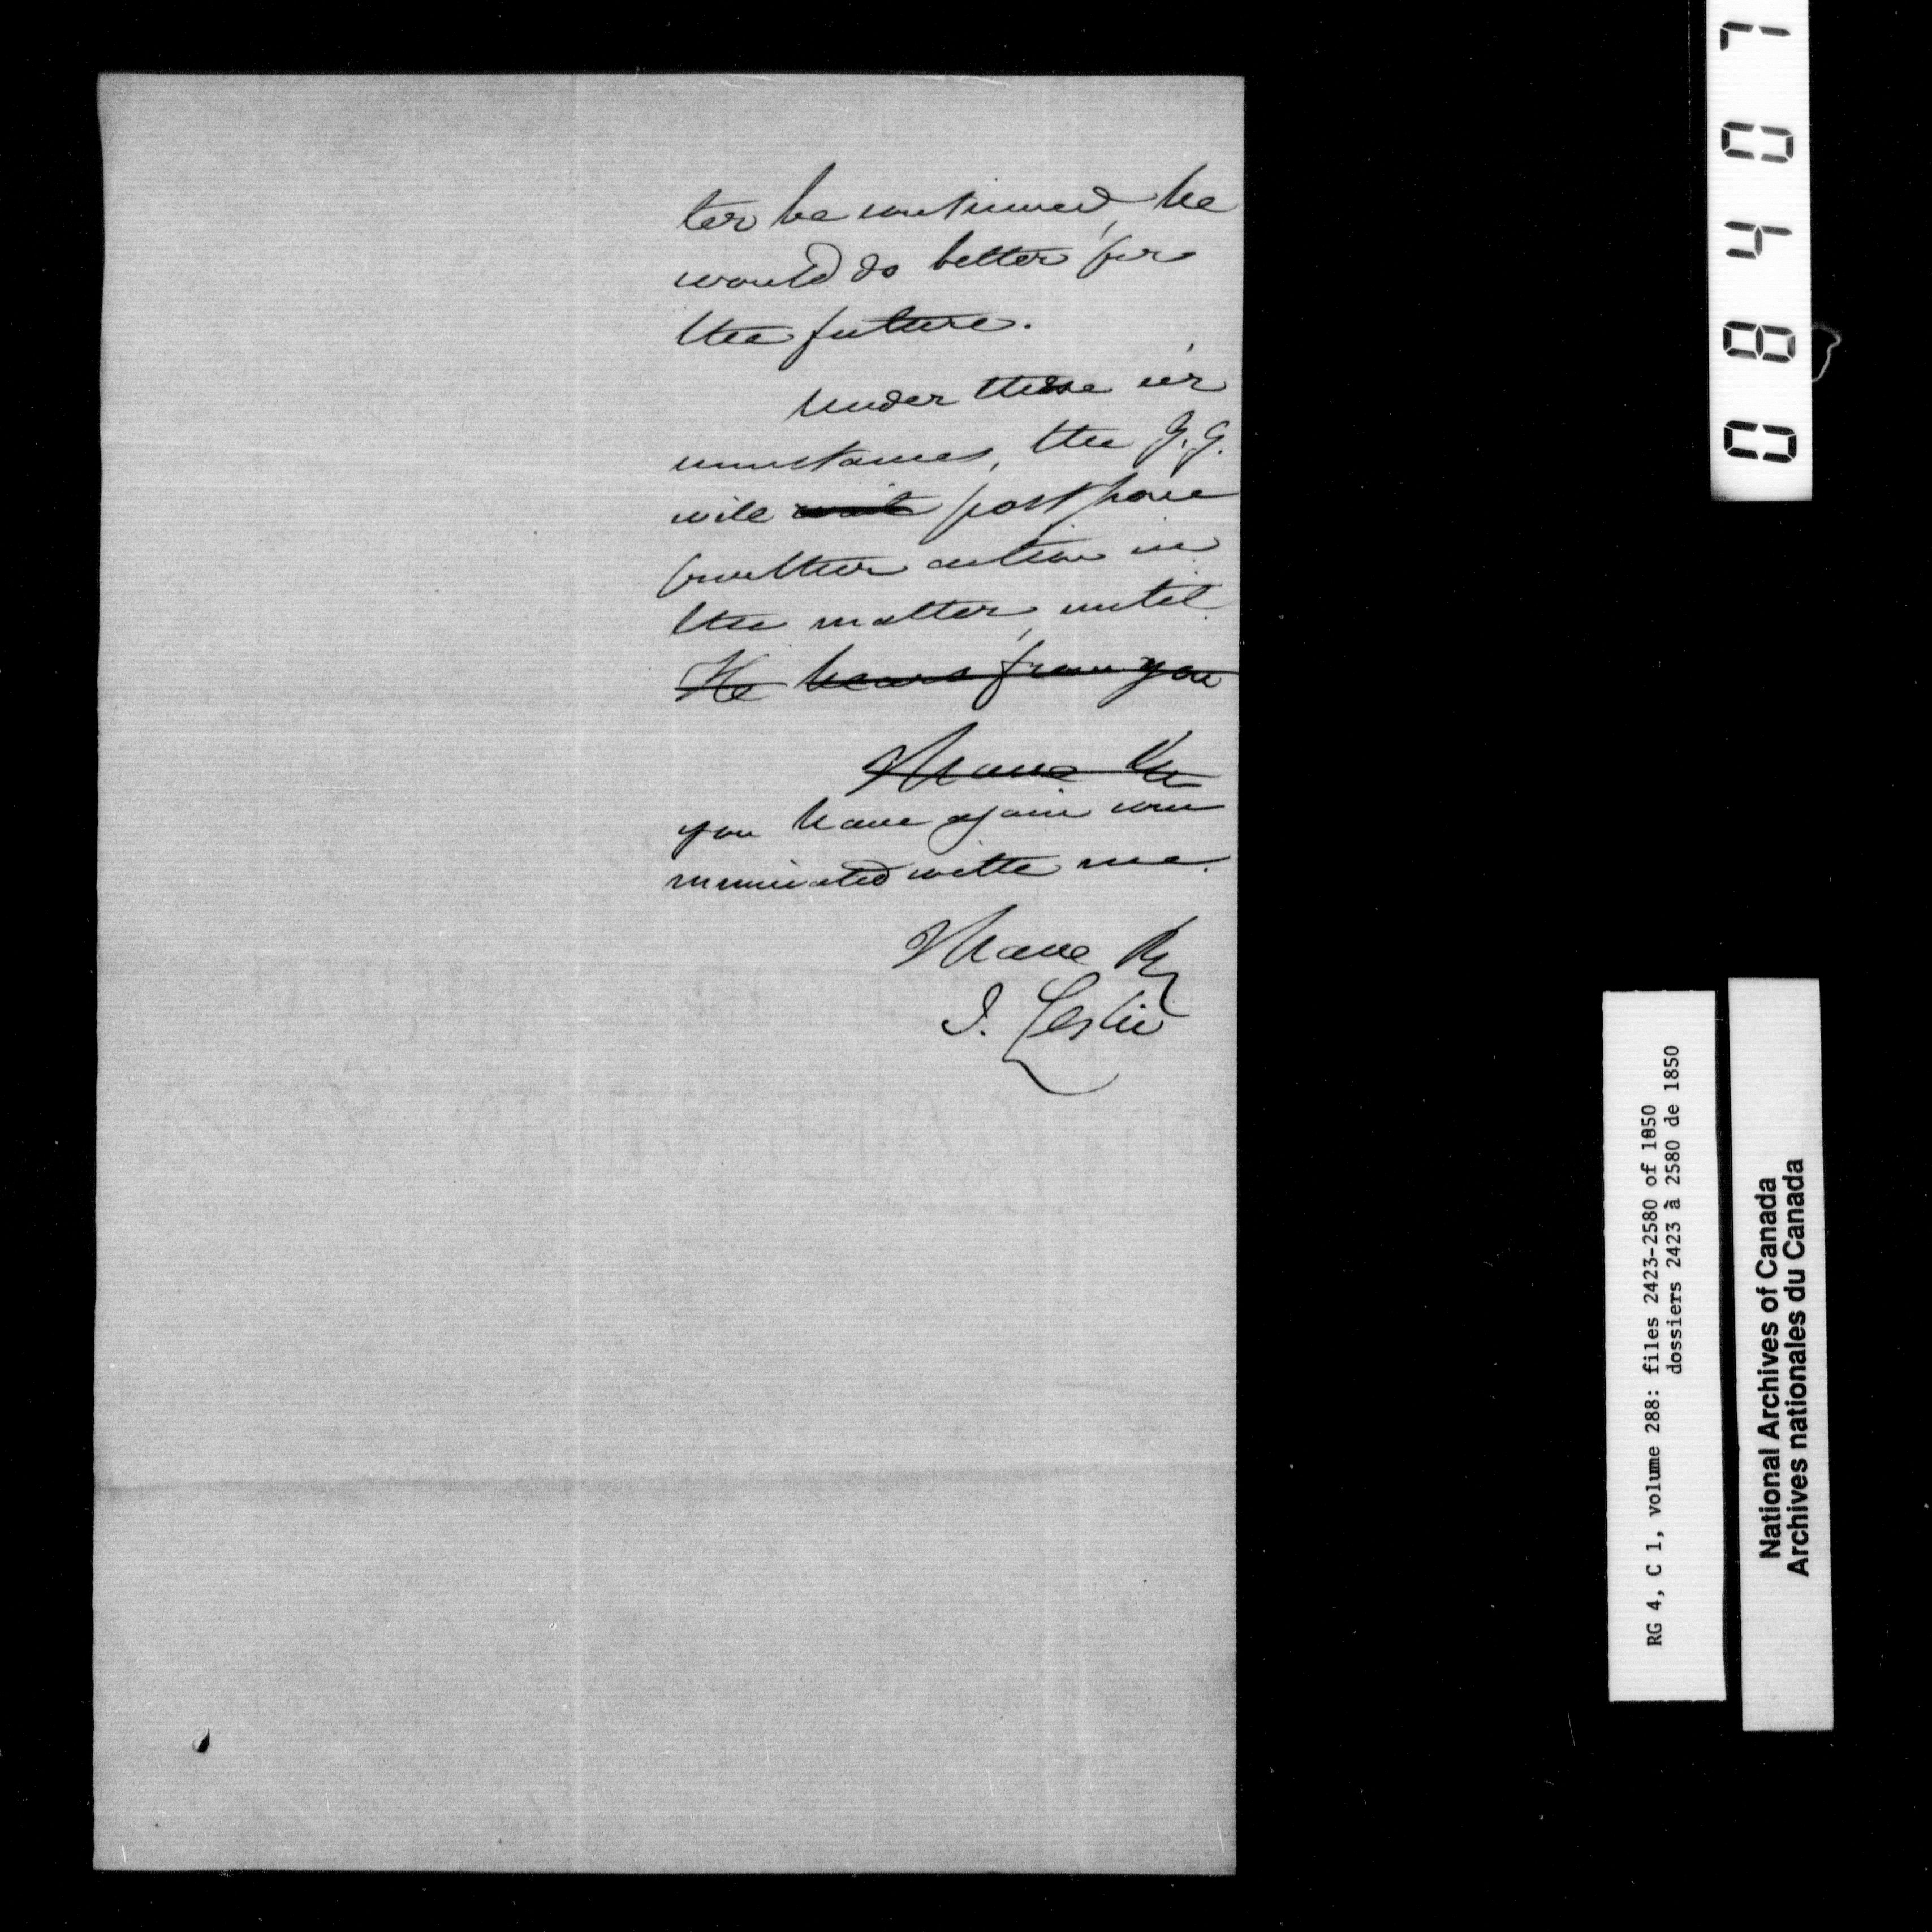 ter be continued, he
would do better for
the future.
Under these cir
cumstances, the G.G.
will wait postpone
further action in
the matter, until
He hears from you
I have the
you have again com
municated with me.
I have &c
J. Leslie
08407
RG 4, C 1, volume 288: files 2423-2580 of 1850
dossiers 2423 à 2580 de 1850
National Archives of Canada
Archives nationales du Canada